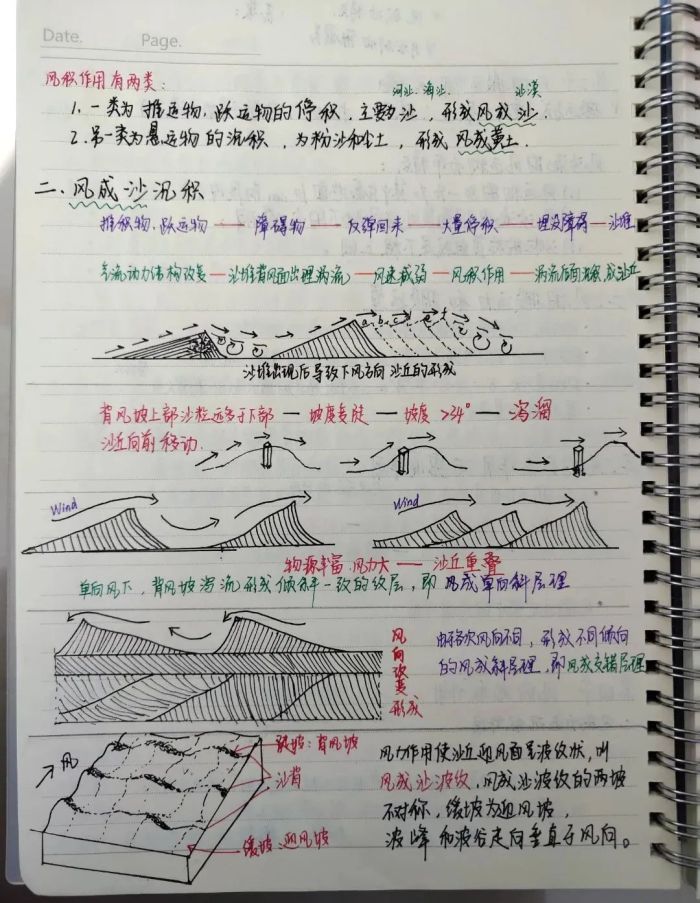 Date.
Page.
风积作用有两类:
河水、海水 沙漠
1. 一类为 推运物、跃运物的停积,主要为沙,形成风成沙.
2. 另一类为悬运物的沉积,为粉沙和尘土,形成 风成黄土.
二、风成沙沉积
推移物、跃运物——障碍物——反弹回来——大量停积——埋没障碍—沙堆
气流动力结构改变—沙堆背风面出现涡流—风速减弱—风积作用—涡流后面堆积成沙丘
a b c d e f
沙堆出现后导致下风方向沙丘的形成
背风坡上部沙粒远多于下部—坡度变陡—坡度>34°—泻溜
沙丘向前移动.
Wind
Wind
物源丰富、风力大——沙丘重叠
单向风下,背风坡泻流形成倾斜一致的纹层,即 风成单向斜层理
风向改变形成
由于各次风向不同,形成不同倾向
的风成斜层理,即风成交错层理
风
陡坡:背风坡
沙脊
缓坡:迎风坡
风力作用使沙丘迎风面呈波纹状,叫
风成沙波纹,风成沙波纹的两坡
不对称,缓坡为迎风坡,
波峰和波谷走向垂直于风向。